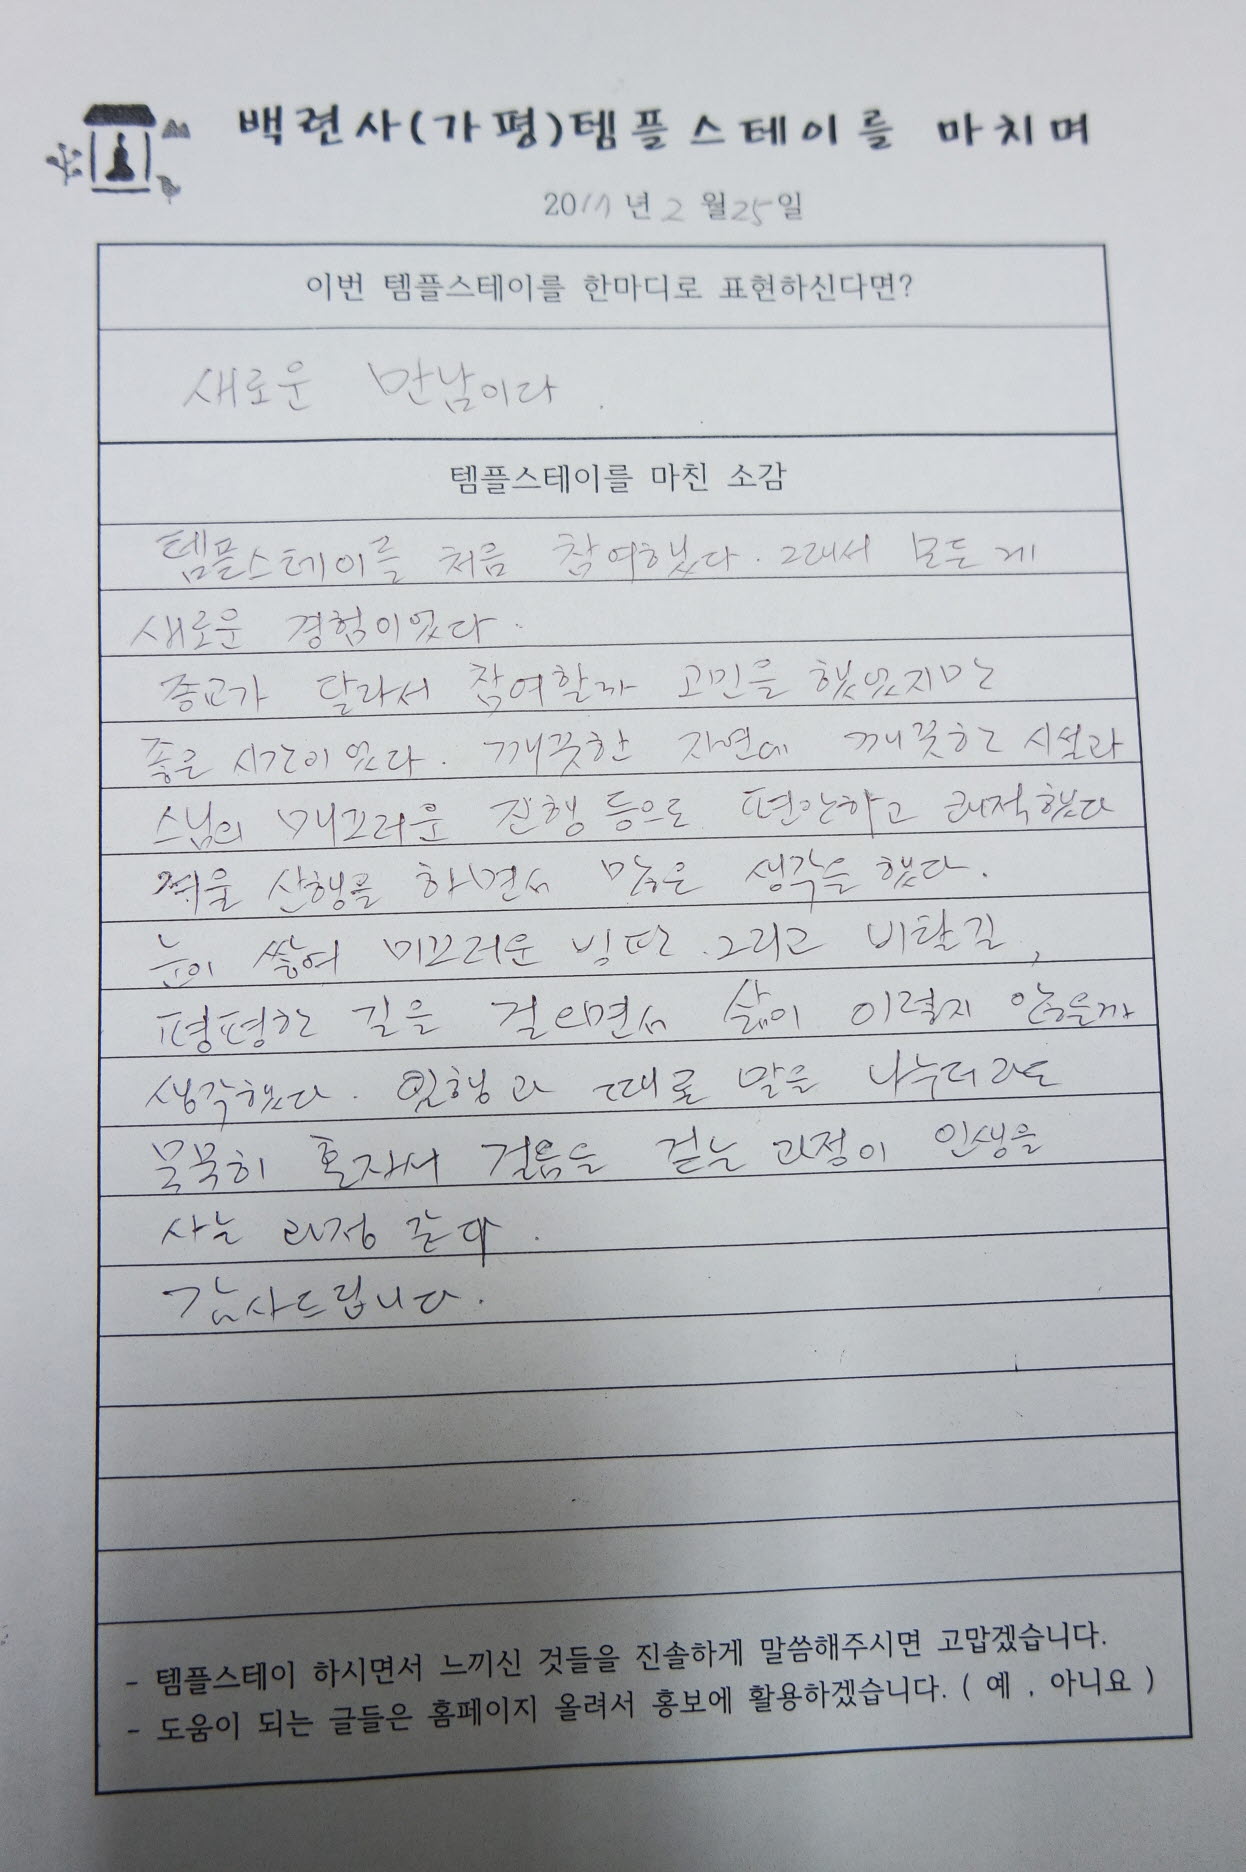 백련사(가평)템플스테이를 마치며
2017년 2월 25일
이번 템플스테이를 한마디로 표현하신다면?
새로운 만남이다.
템플스테이를 마친 소감
템플스테이를 처음 참여했다. 그래서 모든게
새로운 경험이었다.
종교가 달라서 참여할까 고민을 했었지만
좋은 시간이었다. 깨끗한 자연에 깨끗한 시설과
스님의 매끄러운 진행 등으로 편안하고 쾌적했다
겨울 산행을 하면서 많은 생각을 했다.
눈이 쌓여 미끄러운 빙판. 그리고 비탈길,
평평한 길을 걸으면서 삶이 이렇지 않을까
생각했다. 일행과 때로 말을 나누더라도
묵묵히 혼자서 걸음을 걷는 과정이 인생을
사는 과정 같다.
감사드립니다.
- 템플스테이 하시면서 느끼신 것들을 진솔하게 말씀해주시면 고맙겠습니다.
- 도움이 되는 글들은 홈페이지 올려서 홍보에 활용하겠습니다. ( 예 , 아니요 )